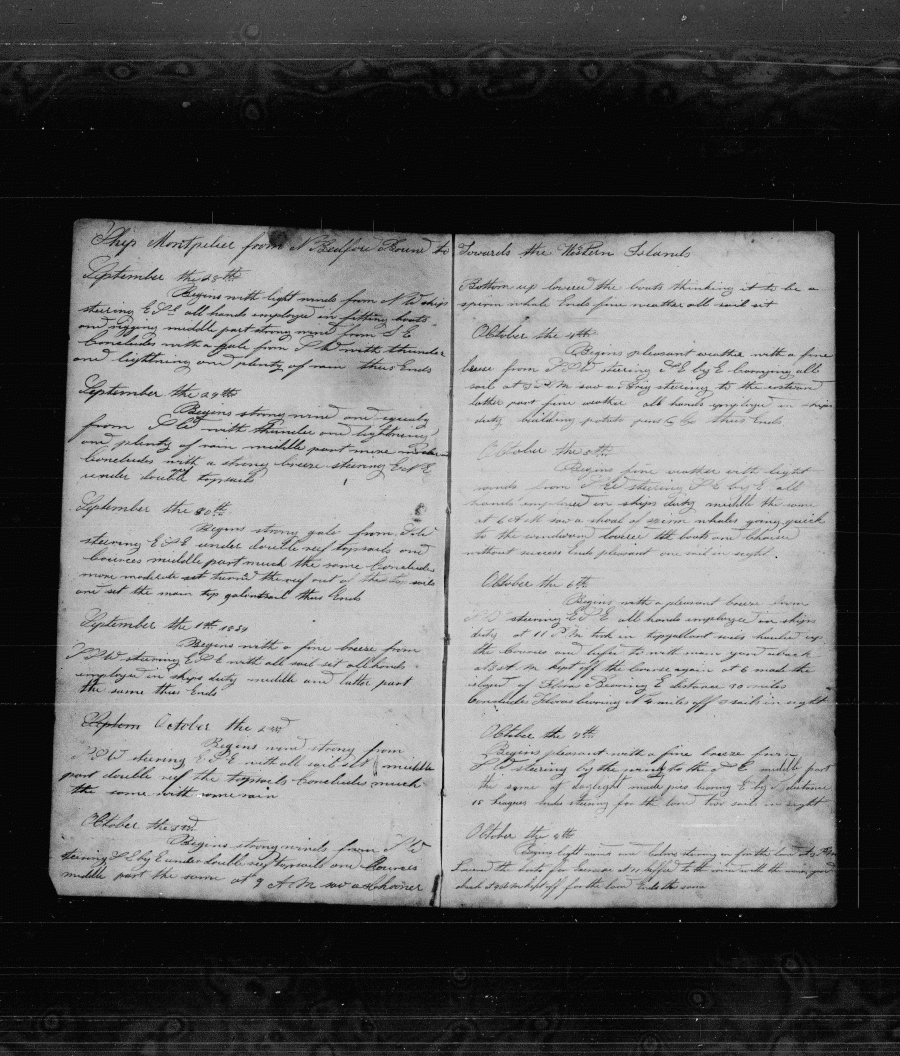 Ship Montpelier from N Bedford Bound to
September the 28th
Begins with light winds from N W ship
steering E S E all hands employed in fitting boats
and rigging middle part strong wind from S E
Concludes with a gale from S W with thunder
and lightning and plenty of rain thus Ends
September the 29th
Begins strong wind and squaly
from S W with thunder and lightning
and plenty of rain middle part more
Concludes with a strong breeze steering
under double topsails
September the 30th
Begins strong gale from S W
steering E S E under double reef topsails and
Courses middle part much the same Concludes
more moderate set turnd the reef out of the to sails
and set the main top galentsail thus Ends
September the 1th 1851
Begins with a fine breeze from
S S W steering E S E with all sail set all hands
employed in ships duty middle and latter part
the same thus Ends
Septem October the 2nd
Begins wind strong from
S S W steering E S E with all sail set middle
part double reef the topsails Concludes much
the same with some rain
October the 3rd
Begins strong winds from S W
steering S E by E under double reef topsails and Courses
middle part the same at 9 A M saw a Schooner
Towards the Western Islands
Bottom up lowered the boats thinking it to be a
sperm whale Ends fine weather all sail set
October the 4th
Begins pleasant weather with a fine
breese from S S W steering E by E carrying all
sail at A M saw a Brig steering to the
latter part fine weather all hands employed in ships
duty building potato pens thus Ends
October the 5th
Begins fine weather with light
winds from steering S E by E all
hands employed in ships duty middle the same
at 6 A M saw a shoal of sperm whales going quick
to the windward lowered the boats and Chaised
without success Ends pleasant one sail in sight
October the 6th
Begins with a pleasant breeze from
steering E S E all hands employed in ships
duty at 11 P M took in topgallant sails hauled up
the Courses and luffed to with main yard aback
at A M kept off the Course again at 6 made the
island of Flores Bearing E distance 30 miles
Concludes Flores bearing N 4 miles off 2 sails in sight
October the 7th
Begins pleasant with a fine breeze from
S W steering by the wind to the S E middle part
the same at daylight made pico bearing E by distance
15 leagues Ends steering for the land two sail in sight
October the 8th
Begins light winds and steering on for the land at
Lowered the boats for at 11 luffed to the wind with the main yard
aback at A M kept off for the land Ends the same